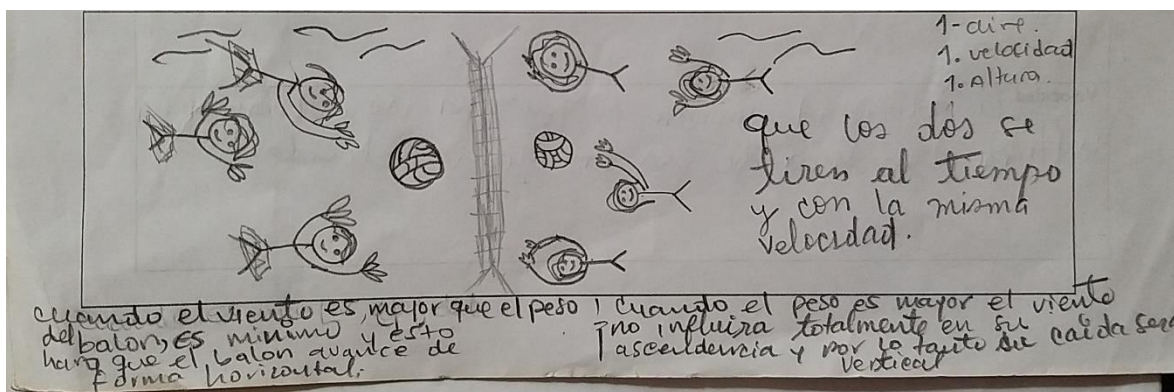 1-aire.
1. velocidad
1. Altura.
que los dos se
tiren al tiempo
y con la misma
velocidad.
cuando el viento es, mayor que el peso
del balon, es minimo y esto
hara que el balon avance de
forma horizontal,
Cuando el peso es mayor el viento
no influira totalmente en su
ascendencia y por lo tanto su caida sera
vertical